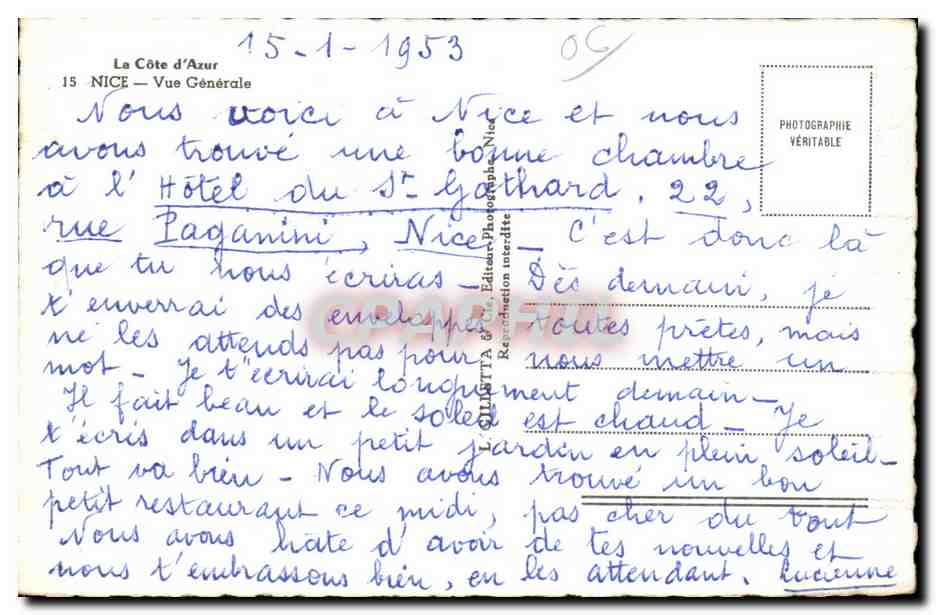 15-1-1953
OC
La Côte d'Azur
15 NICE — Vue Générale
PHOTOGRAPHIE
VÉRITABLE
Nous voici à Nice et nous
avons trouvé une bonne chambre
à l'Hôtel du St-Gothard, 22,
rue Paganini, Nice_ C'est donc là
que tu nous écriras_ Dès demain, je
t'enverrai des enveloppes toutes prêtes, mais
ne les attends pas pour nous mettre un
mot_ Je t'écrirai longuement demain_
Il fait beau et le soleil est chaud_ Je
t'écris dans un petit jardin en plein soleil_
Tout va bien_ Nous avons trouvé un bon
petit restaurant ce midi, pas cher du tout
Nous avons hâte d'avoir de tes nouvelles et
nous t'embrassons bien, en les attendant. Lucienne
L. GILLETTA & Cie, Editeur-Photographe, Nice
Reproduction interdite